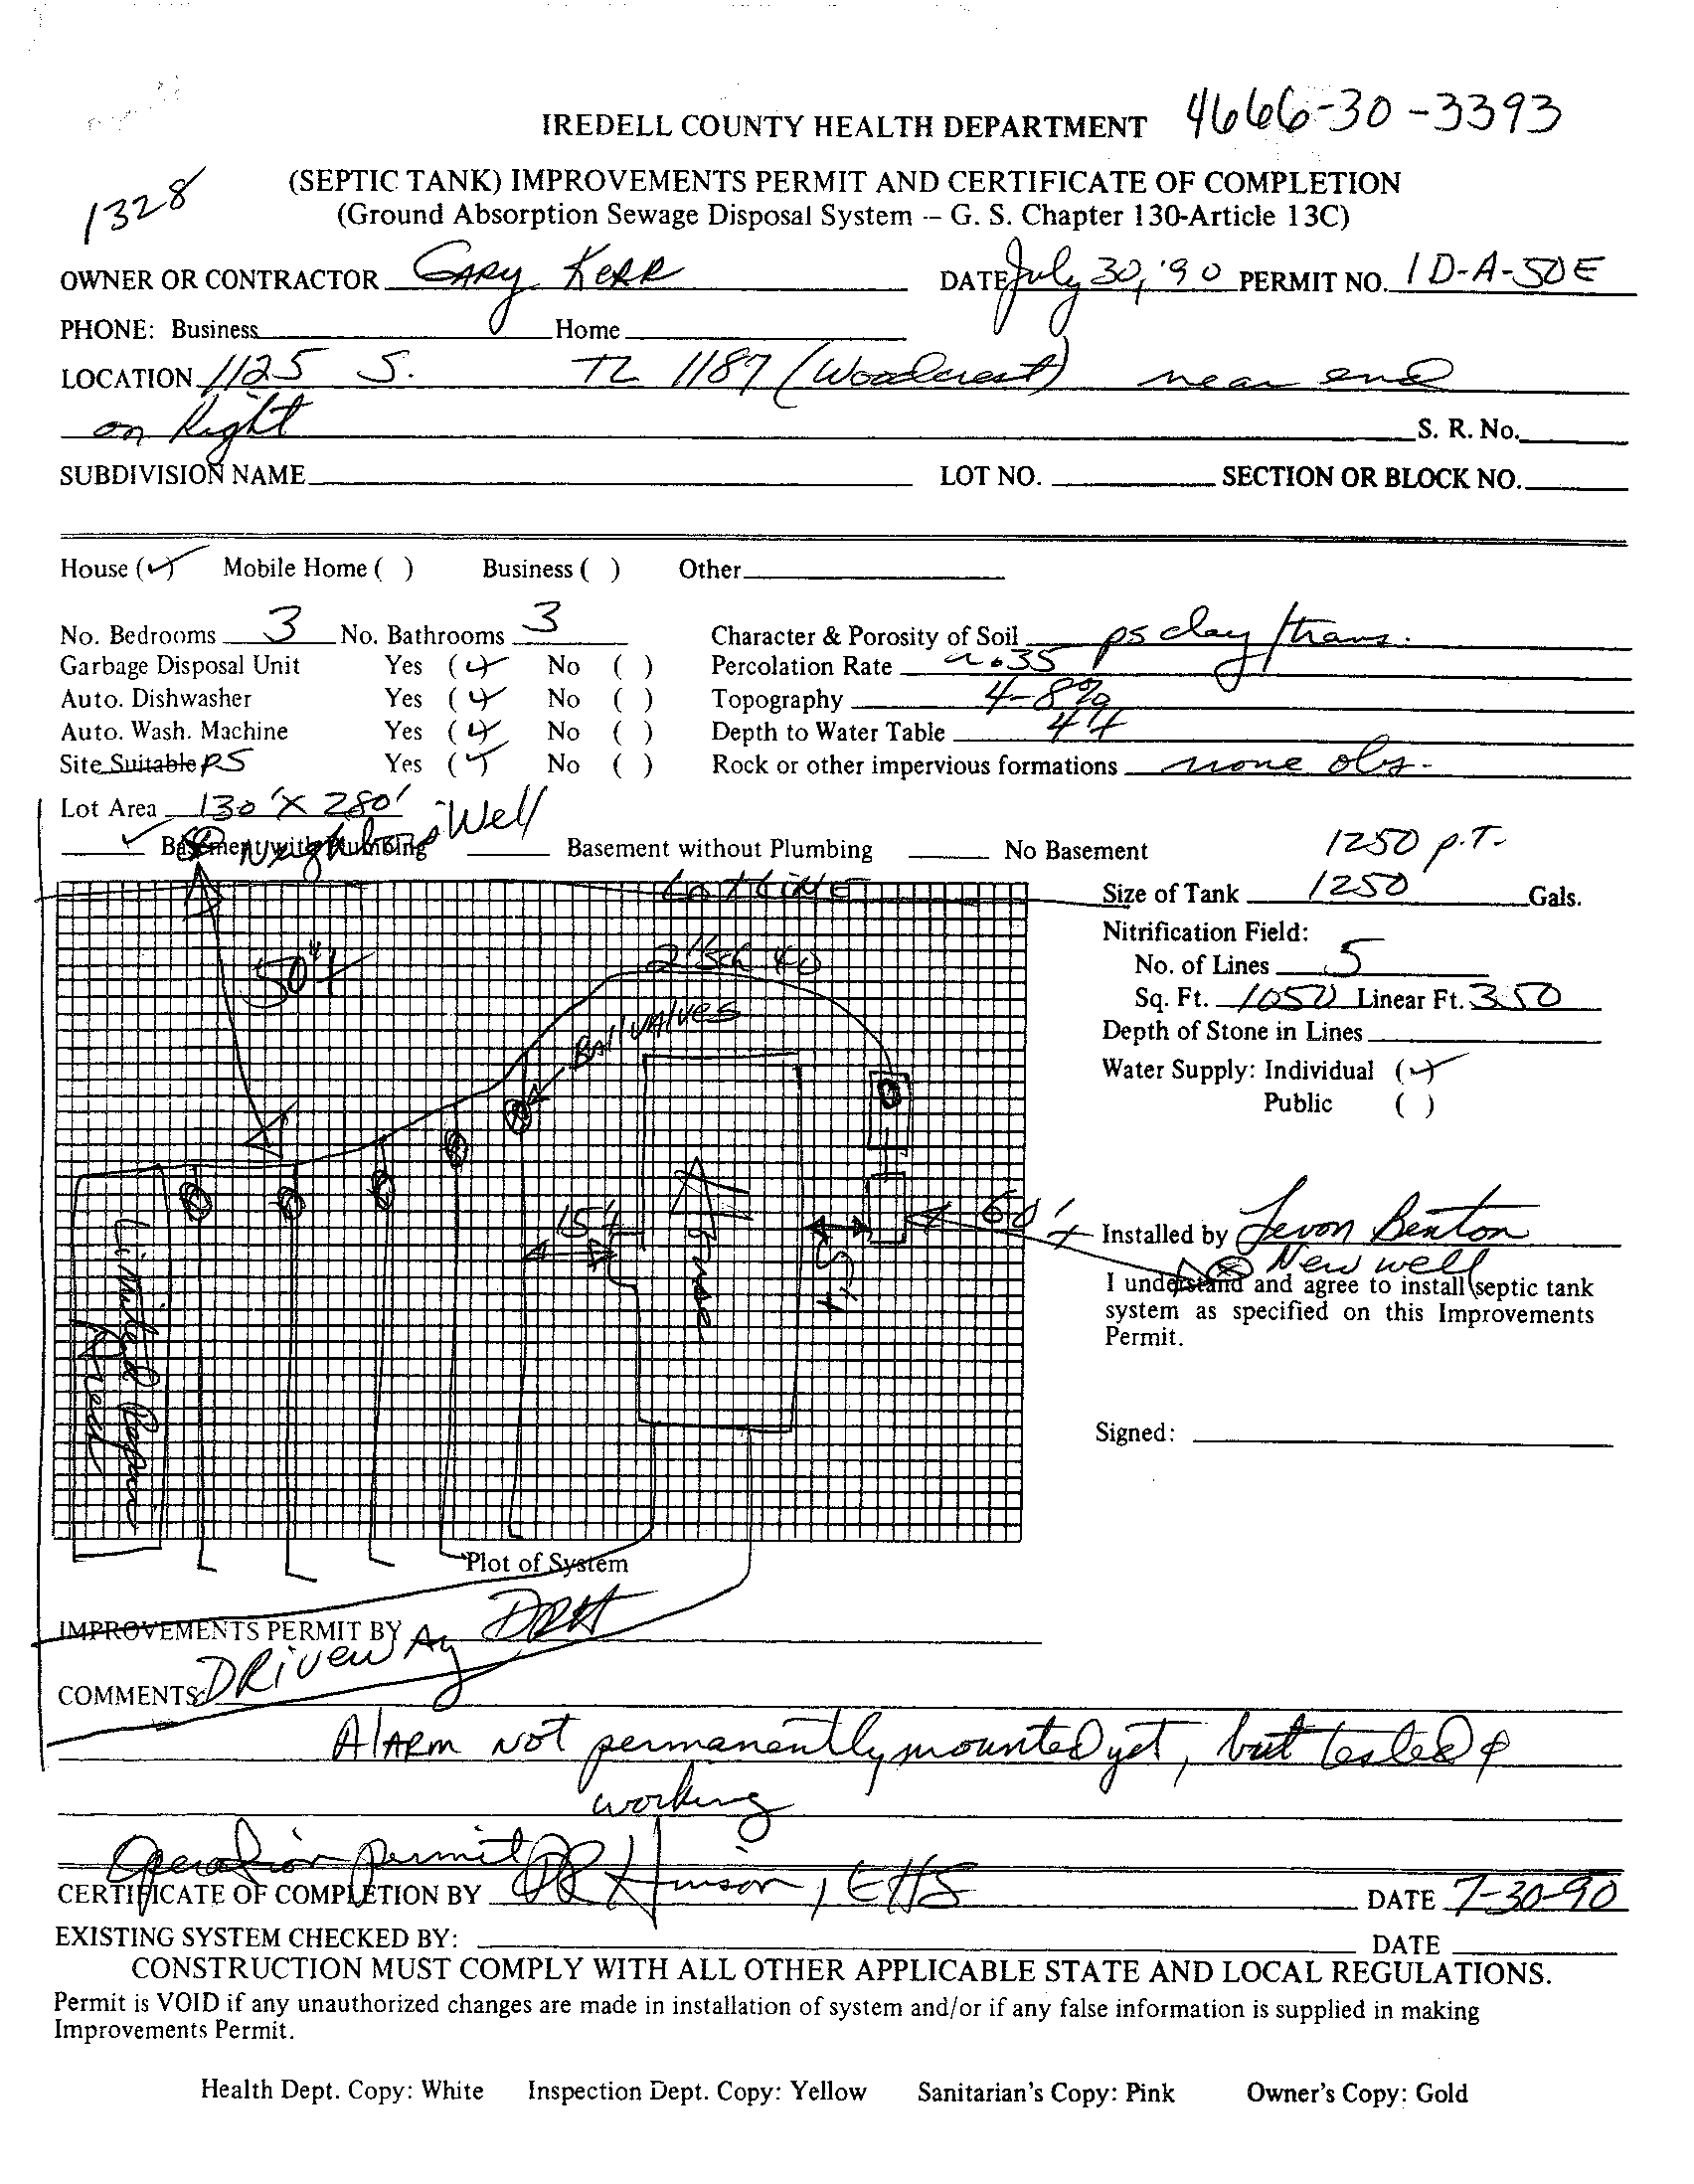 IREDELL COUNTY HEALTH DEPARTMENT 4666-30-3393
1328
(SEPTIC TANK) IMPROVEMENTS PERMIT AND CERTIFICATE OF COMPLETION
(Ground Absorption Sewage Disposal System -- G. S. Chapter 130-Article 13C)
OWNER OR CONTRACTOR Gary Kerr DATE July 30, '90 PERMIT NO. ID-A-50E
PHONE: Business Home
LOCATION 1125 S. TL 1187 (Woodcrest) near end
on Right S. R. No.
SUBDIVISION NAME LOT NO. SECTION OR BLOCK NO.
House (✓) Mobile Home ( ) Business ( ) Other
No. Bedrooms 3 No. Bathrooms 3 Character & Porosity of Soil ps clay/trans.
Garbage Disposal Unit Yes (✓) No ( ) Percolation Rate .35
Auto. Dishwasher Yes (✓) No ( ) Topography 4-8%
Auto. Wash. Machine Yes (✓) No ( ) Depth to Water Table 4'+
Site Suitable PS Yes (✓) No ( ) Rock or other impervious formations none obs.
Lot Area 130' X 280'
Neighbors Well
✓ Basement with Plumbing Basement without Plumbing No Basement
1250 P.T.
Size of Tank 1250 Gals.
Nitrification Field:
No. of Lines 5
Sq. Ft. 1050 Linear Ft. 350
Depth of Stone in Lines
Water Supply: Individual (✓)
Public ( )
Lot Line
50'+
2" Sch 40
Ball valves
15'+
House
5'+
60'+
Limited Repair
Area
Installed by Levon Benton
New well
I understand and agree to install septic tank
system as specified on this Improvements
Permit.
Signed:
Plot of System
IMPROVEMENTS PERMIT BY DRH
Driveway
COMMENTS:
Alarm not permanently mounted yet, but tested &
working
Operation permit
CERTIFICATE OF COMPLETION BY DR Hinson, EHS DATE 7-30-90
EXISTING SYSTEM CHECKED BY: DATE
CONSTRUCTION MUST COMPLY WITH ALL OTHER APPLICABLE STATE AND LOCAL REGULATIONS.
Permit is VOID if any unauthorized changes are made in installation of system and/or if any false information is supplied in making
Improvements Permit.
Health Dept. Copy: White Inspection Dept. Copy: Yellow Sanitarian's Copy: Pink Owner's Copy: Gold